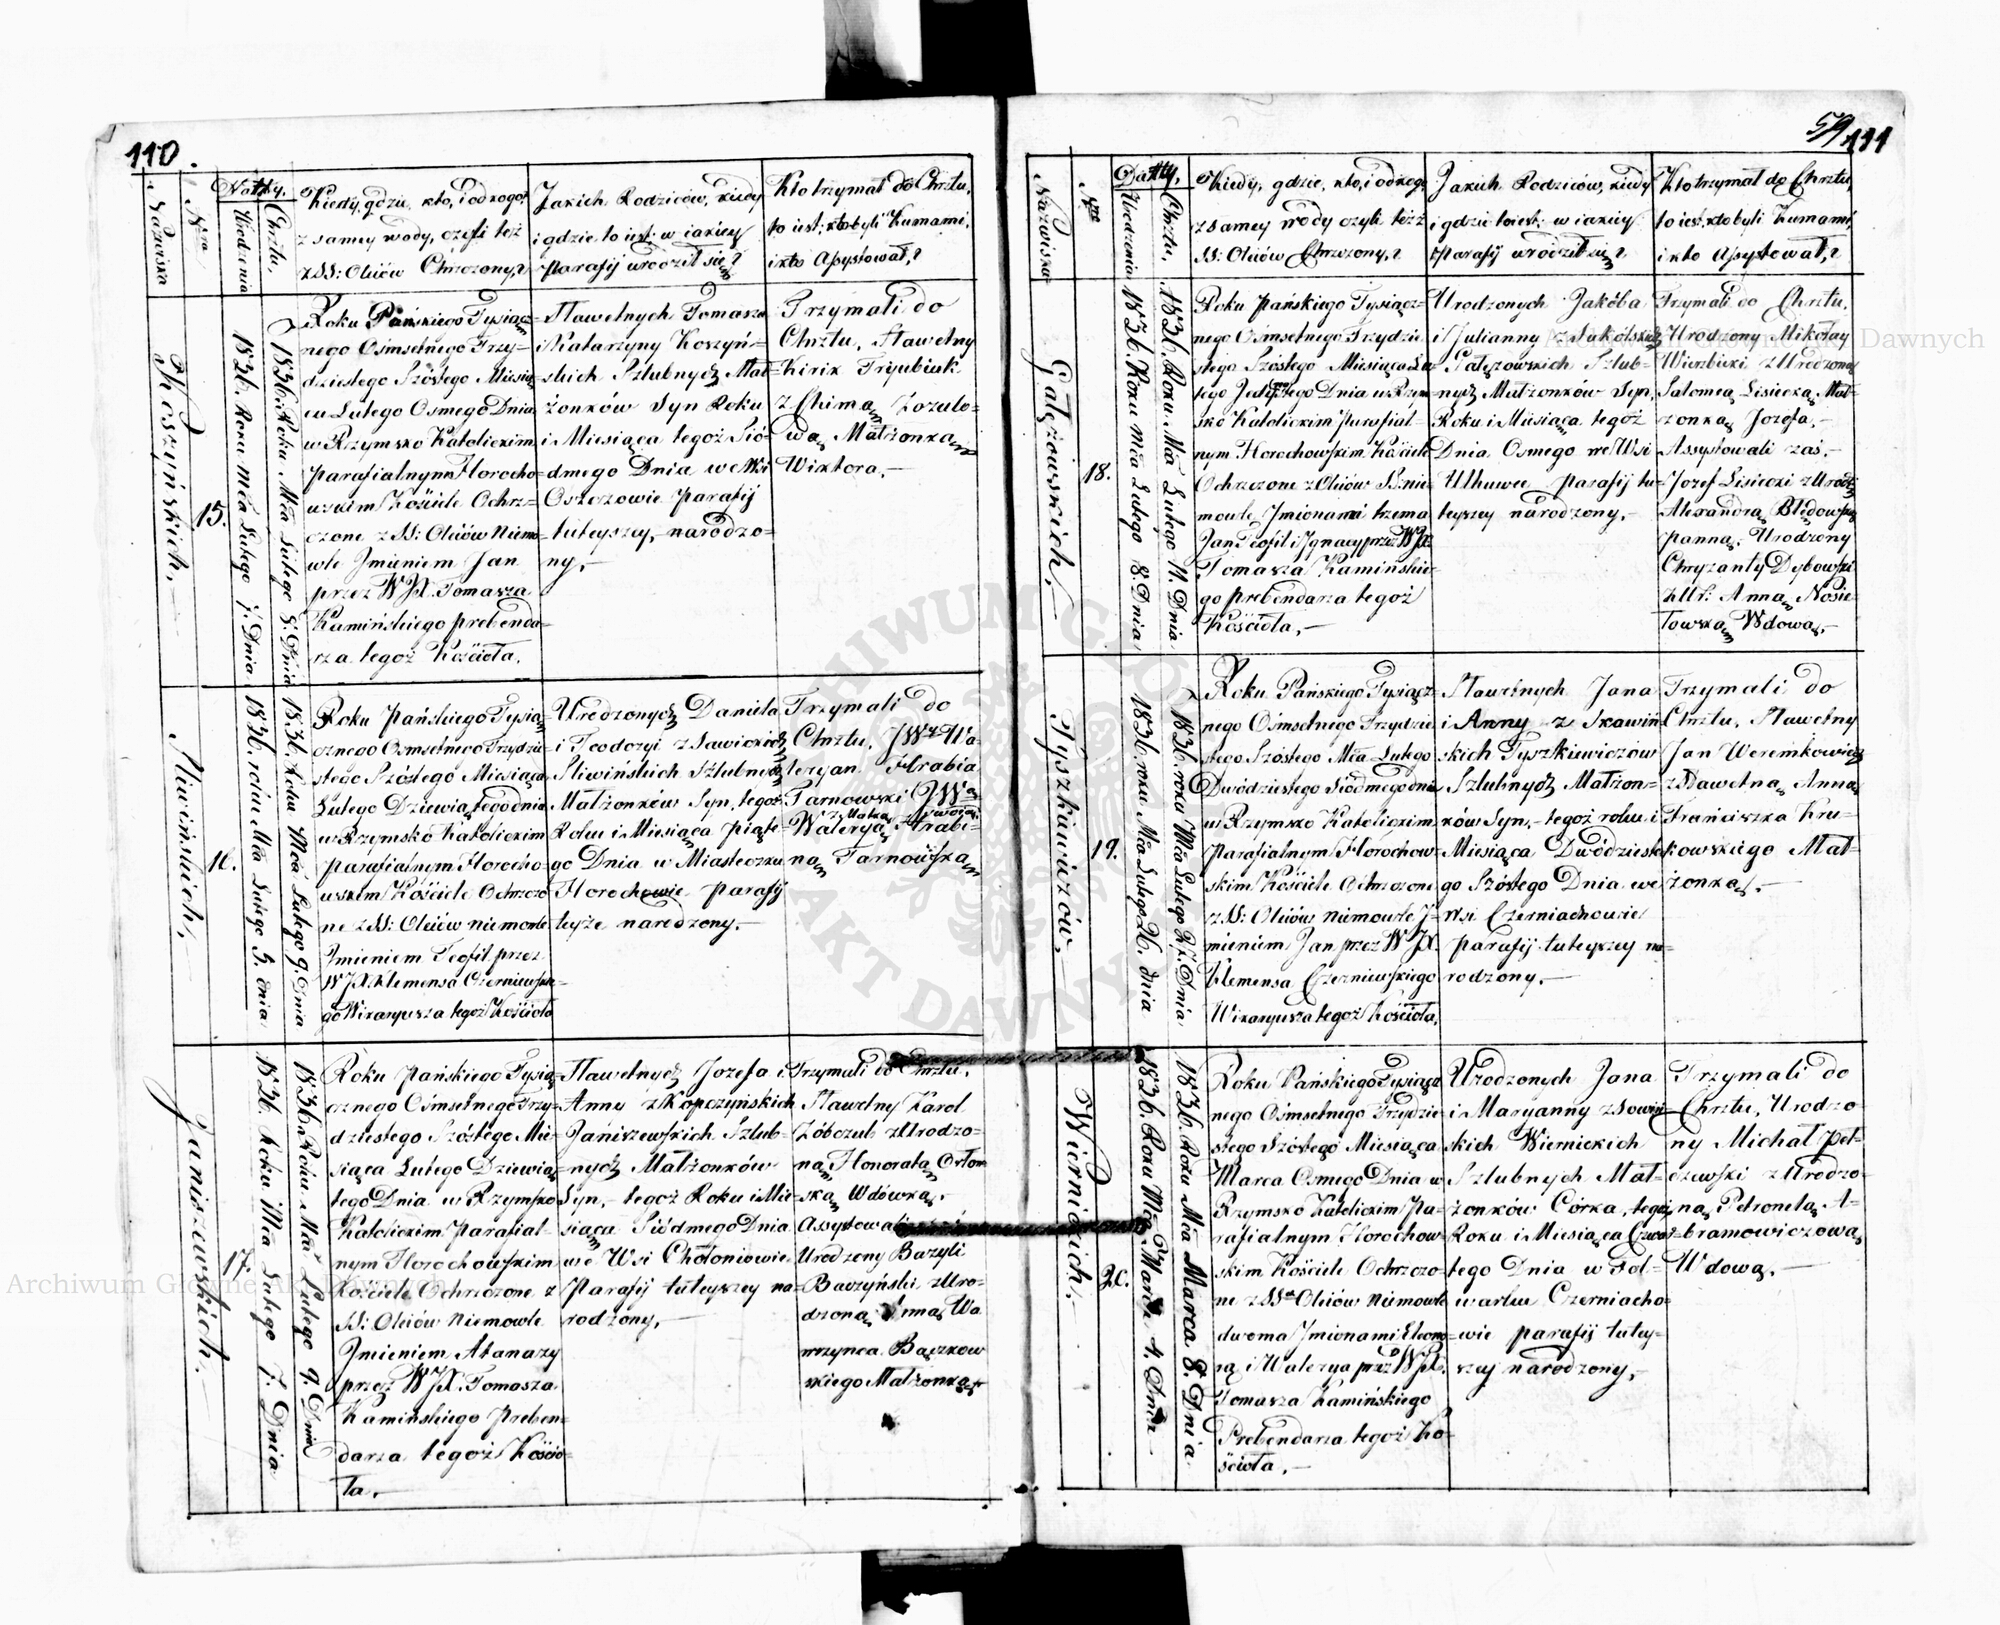 110.
Nazwiska
Nra
Datty.
Urodzenia
Chrztu,
Kiedy, gdzie, kto, i od kogo,
z samey wody, czyli też
z SS: Oliiów Chrzczony,?
Jakich Rodziców, kiedy
i gdzie to iest: w iakiey
Parafij urodził się,?
Kto trzymał do Chrztu,
to iest; kto byli Kumami,
i kto Asystował,?
Koszyńskich,—
15.
1836. Roku Mca Lutego 7. Dnia
1836. Roku Mca Lutego 8. Dnia
Roku Pańskiego Tysiącz=
nego Osmsetnego Trzy=
dziestego Szóstego Miesią
ca Lutego Osmego Dnia
w Rzymsko Katolickim
parafialnym Horocho=
wskim Kościele Ochrz=
czone z SS: Oliiów Niemo=
wle Jmieniem Jan
przez WJX. Tomasza
Kamińskiego prebenda=
rza tegoż Kościoła.
Sławetnych Tomasza
i Katarzyny Koszyń=
skich Szlubnych Mał=
żonków Syn Roku
i Miesiąca tegoż Sió=
dmego Dnia we Wsi
Oszczowie parafij
tuteyszey, narodzo=
ny,—
Trzymali do
Chrztu, Sławetny
Kirik Tryubiuk
z Chimą Zozulo=
wą Małżonką
Wiktora,—
Śliwińskich,—
16.
1836. roku Mca Lutego 5. dnia
1836. Roku Mca Lutego 9. Dnia
Roku Pańskiego Tysią=
cznego Osmsetnego Trzydzie
stego Szóstego Miesiąca
Lutego Dziewiątego dnia
w Rzymsko Katolickim
parafialnym Horocho=
wskim Kościele Ochrzczo
ne z SS: Oliiów niemowle
Jmieniem Teofil przez
WJX. Klemensa Czerniewskie=
go Wikaryusza tegoż Kościoła
Urodzonych Daniela
i Teodozyi z Sawickich
Sliwińskich Szlubnych
Małżonków Syn, tegoż
Roku i Miesiąca Piąte=
go Dnia w Miasteczku
Horochowie parafij
teyże narodzony,—
Trzymali do
Chrztu, JWy Wa=
leryan Hrabia
Tarnowski z JWą
z Matką swoią
Waleryą Hrabi=
ną Tarnowską
Janiszewskich,—
17.
1836. Roku Mca Lutego 7. Dnia
1836. Roku Mca Lutego 9. Dnia
Roku Pańskiego Tysią=
cznego Ośmsetnego Trzy=
dziestego Szóstego Mie=
siąca Lutego Dziewią=
tego Dnia w Rzymsko
Katolickim Parafial=
nym Horochowskim
Kościele Ochrzczone z
SS: Oliiów Niemowle
Jmieniem Atanazy
przez WJX. Tomasza
Kamińskiego Preben=
darza tegoż Kościo=
ła,—
Sławetnych Jozefa i
Anny z Kopczyńskich
Janiszewskich Szlub=
nych Małżonków
Syn,— tegoż Roku i Mie=
siąca Siódmego Dnia
we Wsi Chołoniowie
Parafij tuteyszey na=
rodzony,—
Trzymali do Chrztu,
Sławetny Karol
Zóbczuk z Urodzo=
ną Honoratą Orłow
ską Wdówką,—
Assystowali
Urodzony Bazyli
Baczyński z Uro=
dzoną Anną Wa
wrzynca Bączkow
skiego Małżonką
59 111
Nazwiska
Nra
Datty,
Urodzenia
Chrztu,
Kiedy, gdzie, kto, i od kogo
z samey wody czyli też z
SS: Oliiów Chrzczony,?
Jakich Rodziców, kiedy
i gdzie to iest: w iakiey
Parafij urodził się,?
Kto trzymał do Chrztu,
to iest, kto byli Kumami,
i kto Asystował,?
Gałęzowskich,—
18.
1836. Roku Mca Lutego 8. Dnia
1836. Roku Mca Lutego 11. Dnia
Roku Pańskiego Tysiącz=
nego Osmsetnego Trzydzie
stego Szóstego Miesiąca Lu
tego Jedynastego Dnia w Rzym
sko Katolickim Parafial=
nym Horochowskim Kościele
Ochrzczone z Oliiów SS: nie=
mowle Jmionami trzema
Jan Teofil i Jgnacy przez WJX
Tomasza Kamińskie=
go prebendarza tegoż
Kościoła,—
Urodzonych Jakóba
i Julianny z Sukólskich
Gałęzowskich Szlub=
nych Małżonków Syn,
Roku i Miesiąca tegoż
Dnia Osmego we Wsi
Uhuwce parafij tu=
teyszey narodzony,—
Trzymali do Chrztu,
Urodzony Mikołay
Wierzbicki z Urodzoną
Salomeą Lisiecką Mał=
żonką Jozefa,—
Assystowali zaś,—
Jozef Lisiecki z Urodz
Alexandrą Błędowską
panną; Urodzony
Chryzanty Dybowski
z Ur: Anną Nosie=
łowską Wdową,—
Tyszkiewiczów,—
19.
1836. roku Mca Lutego 26. dnia
1836. roku Mca Lutego 27. Dnia
Roku Pańskiego Tysiącz=
nego Osmsetnego Trzydzie
stego Szóstego Mca Lutego
Dwódziestego Siódmego dnia
w Rzymsko Katolickim
Parafialnym Horochow=
skim Kościele Ochrzczone
z SS: Oliiów Niemowle J=
mieniem Jan przez WJX.
Klemensa Czerniewskiego
Wikaryusza tegoż Kościoła,
Sławetnych Jana
i Anny z Skawiń=
skich Tyszkiewiczów
Szlubnych Małżon=
ków Syn,— tegoż roku i
Miesiąca Dwódzieste
go Szóstego Dnia we
Wsi Czerniachowie
parafij tuteyszey na=
rodzony,—
Trzymali do
Chrztu, Sławetny
Jan Weremkowicz
z Sławetną Anną
Franciszka Kru=
kowskiego Mał=
żonką,—
Wiernickich,—
20.
1836. Roku Mca Marca 4. Dnia
1836. Roku Mca Marca 8. Dnia
Roku Pańskiego Tysiącz
nego Ośmsetnego Trzydzie
stego Szóstego Miesiąca
Marca Osmego Dnia w
Rzymsko Katolickim Pa=
rafialnym Horochow=
skim Kościele Ochrzczo=
ne z SS. Oliiów Niemowle
dwoma Jmionami Eleono=
rą i Walerya przez WJX.
Tomasza Kamińskiego
Prebendarza tegoż Ko=
ścioła,—
Urodzonych Jana
i Maryanny z Sowiń=
skich Wiernickich
Szlubnych Mał=
żonków Córka, tegoż
Roku i Miesiąca Czwar=
tego Dnia w Fol=
warku Czerniacho=
wie parafij tutey=
szej narodzony,—
Trzymali do
Chrztu, Urodzo=
ny Michał Peł=
czewski z Urodzo=
ną Petronelą A=
bramowiczową
Wdową,—
Archiwum Główne Akt Dawnych
Archiwum Główne Akt Dawnych
ARCHIWUM GŁÓWNE AKT DAWNYCH